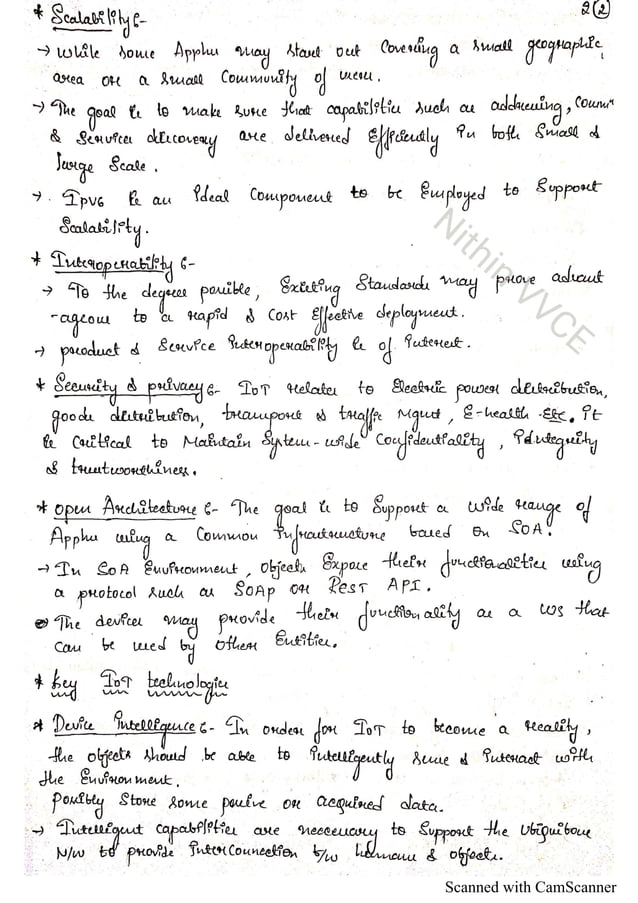 * Scalability :-
2 2
→ while some Appln may start out covering a small geographic
area or a small community of users.
→ The goal is to make sure that capabilities such as addressing, comm
& service discovery are delivered efficiently in both small &
large scale.
→ Ipv6 is an ideal component to be employed to support
scalability.
* Interoperability :-
→ To the degree possible, Existing standards may prove advant
-ageous to a rapid & cost effective deployment.
→ product & service interoperability is of interest.
* Security & privacy :- IoT relates to Electric power distribution,
goods distribution, transport & traffic Mgmt, E-health Etc. It
is critical to Maintain System-wide confidentiality, Identegrity
& trustworthiness.
* open Architecture :- The goal is to support a wide range of
Applns using a common infrastructure based on SOA.
→ In SOA Environment, objects Expose their functionalities using
a protocol such as SOAP or REST API.
The devices may provide their functionality as a WS that
can be used by other Entities.
* key IoT technologies
* Device Intelligence :- In order for IoT to become a reality,
the objects should be able to intelligently sense & interact with
the Environment.
possibly store some passive or acquired data.
→ Intelligent capabilities are neccessary to support the ubiquitous
N/w to provide interconnection b/w humans & objects.
Nithin VVCE
Scanned with CamScanner